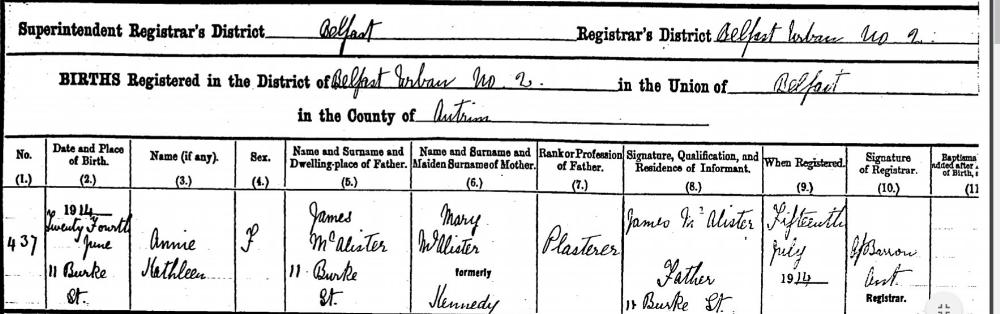 Superintendent Registrar's District Belfast Registrar's District Belfast Urban No. 2.
BIRTHS Registered in the District of Belfast Urban No. 2. in the Union of Belfast
in the County of Antrim
No. Date and Place of Birth. Name (if any). Sex. Name and Surname and Dwelling-place of Father. Name and Surname and Maiden Surname of Mother. Rank or Profession of Father. Signature, Qualification, and Residence of Informant. When Registered. Signature of Registrar. Baptisma
(1.) (2.) (3.) (4.) (5.) (6.) (7.) (8.) (9.) (10.) (11
437
1914
Twenty Fourth
June
11 Burke
St.
Annie
Kathleen
F
James
McAlister
11 Burke
St.
Mary
McAlister
formerly
Kennedy
Plasterer
James McAlister
Father
11 Burke St.
Fifteenth
July
1914
Barron
Registrar.